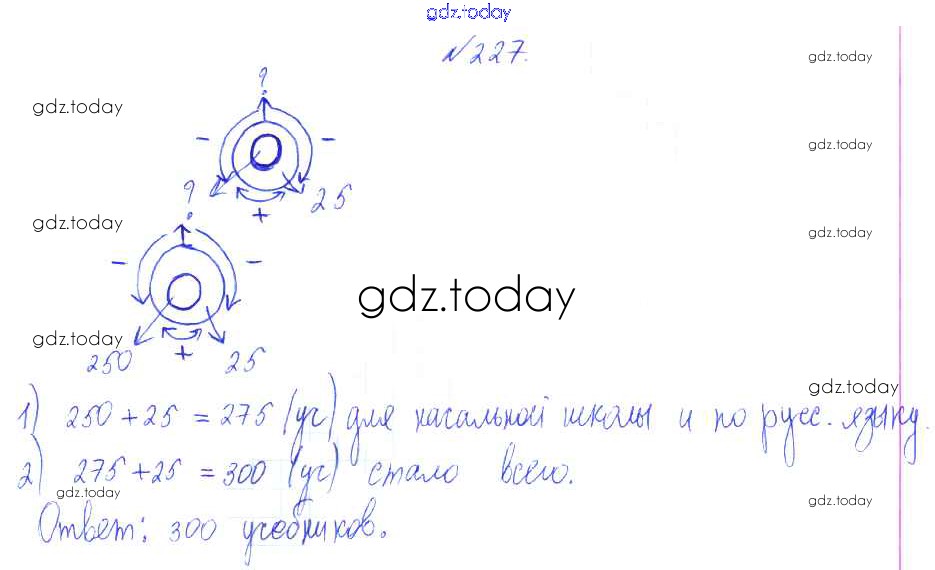 gdz.today
№227.
gdz.today
?
gdz.today
gdz.today
− −
25
+
?
gdz.today
gdz.today
− −
gdz.today
gdz.today
250 + 25
gdz.today
1) 250 + 25 = 275 (уч) для начальной школы и по русс. языку.
2) 275 + 25 = 300 (уч) стало всего.
gdz.today
gdz.today
Ответ: 300 учебников.